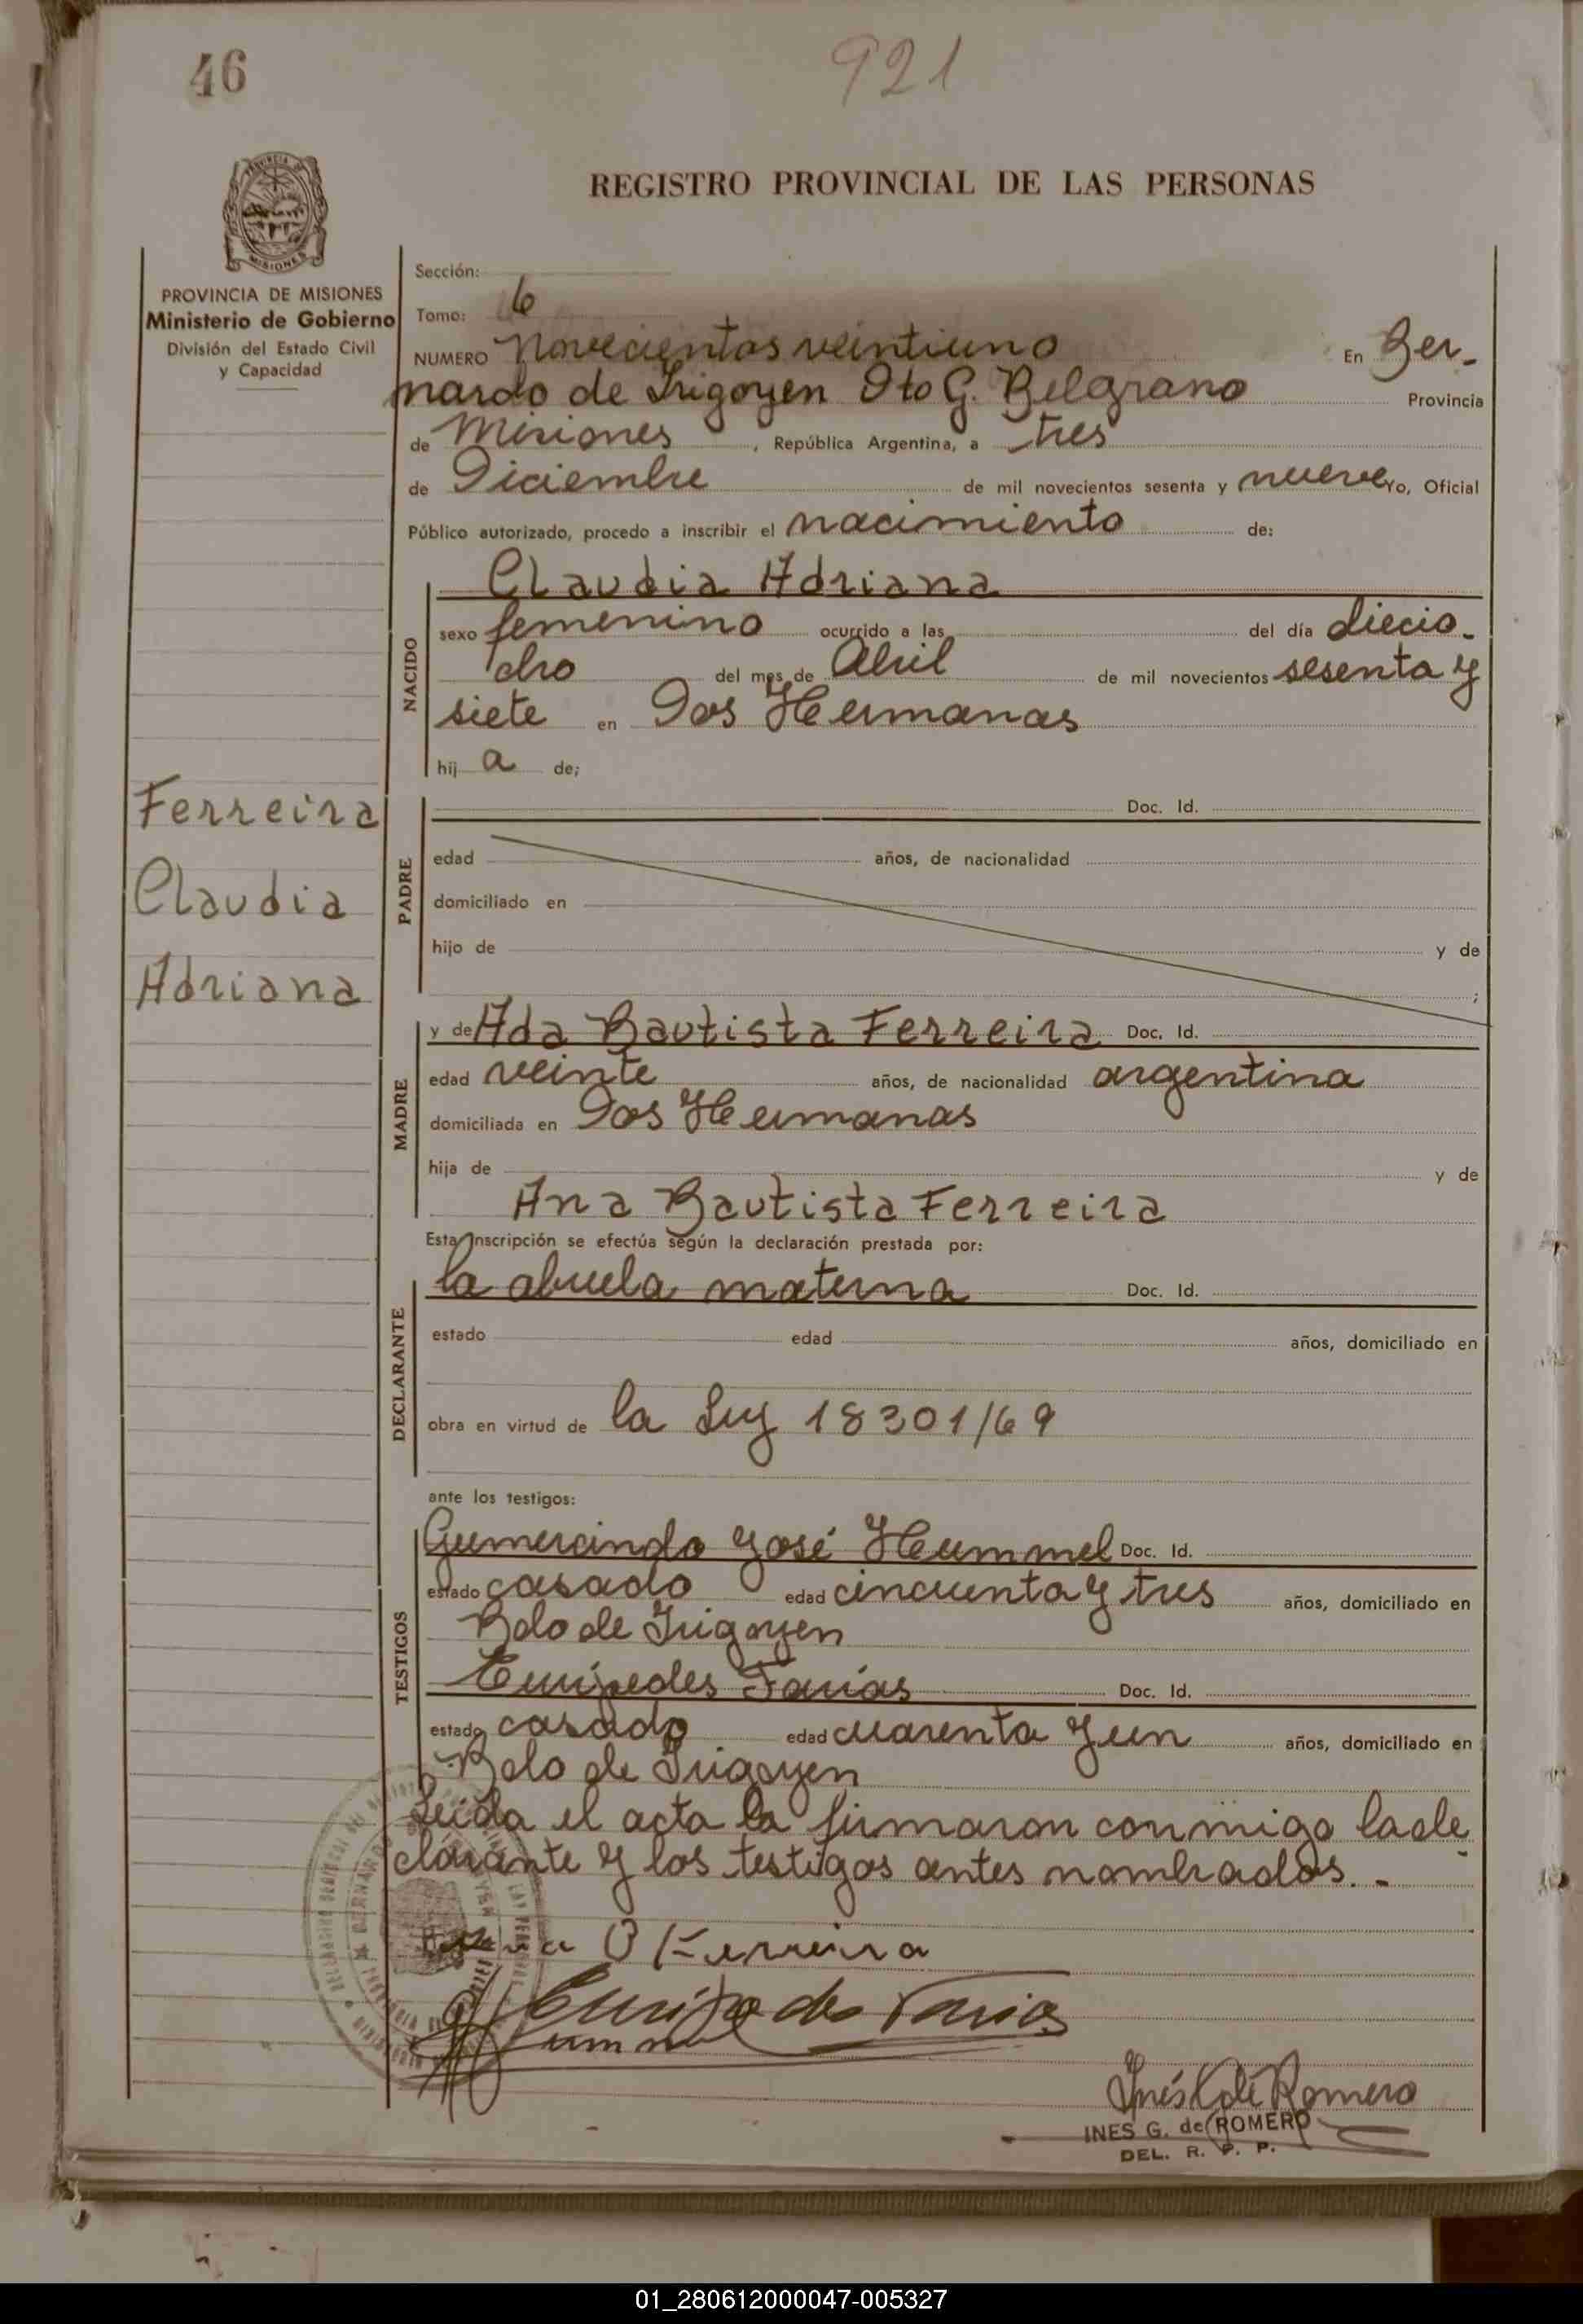 46
921
REGISTRO PROVINCIAL DE LAS PERSONAS
MISIONES
PROVINCIA DE MISIONES
Ministerio de Gobierno
División del Estado Civil
y Capacidad
Sección:
Tomo: 6
NUMERO Novecientos veintiuno En Ber-
nardo de Irigoyen Dto G. Belgrano Provincia
de Misiones, República Argentina, a tres
de Diciembre de mil novecientos sesenta y nueve Yo, Oficial
Público autorizado, procedo a inscribir el nacimiento de:
NACIDO
Claudia Adriana
sexo femenino ocurrido a las del día diecio-
cho del mes de Abril de mil novecientos sesenta y
siete en Dos Hermanas
hij a de;
Ferreira
Claudia
Adriana
PADRE
Doc. Id.
edad años, de nacionalidad
domiciliado en
hijo de y de
;
MADRE
y de Ada Bautista Ferreira Doc. Id.
edad veinte años, de nacionalidad argentina
domiciliada en Dos Hermanas
hija de y de
Ana Bautista Ferreira
Esta inscripción se efectúa según la declaración prestada por:
DECLARANTE
la abuela materna Doc. Id.
estado edad años, domiciliado en
obra en virtud de la Ley 18301/69
ante los testigos:
TESTIGOS
Gumercindo José Hummel Doc. Id.
estado casado edad cincuenta y tres años, domiciliado en
Bdo de Irigoyen
Eurípedes Farias Doc. Id.
estado casado edad cuarenta y un años, domiciliado en
Bdo de Irigoyen
Leída el acta la firmaron conmigo la de
clarante y los testigos antes nombrados.-
Ferreira
Euripedes Farias
Inés G de Romero
INES G. de ROMERO
DEL. R. P. P.
01_280612000047-005327